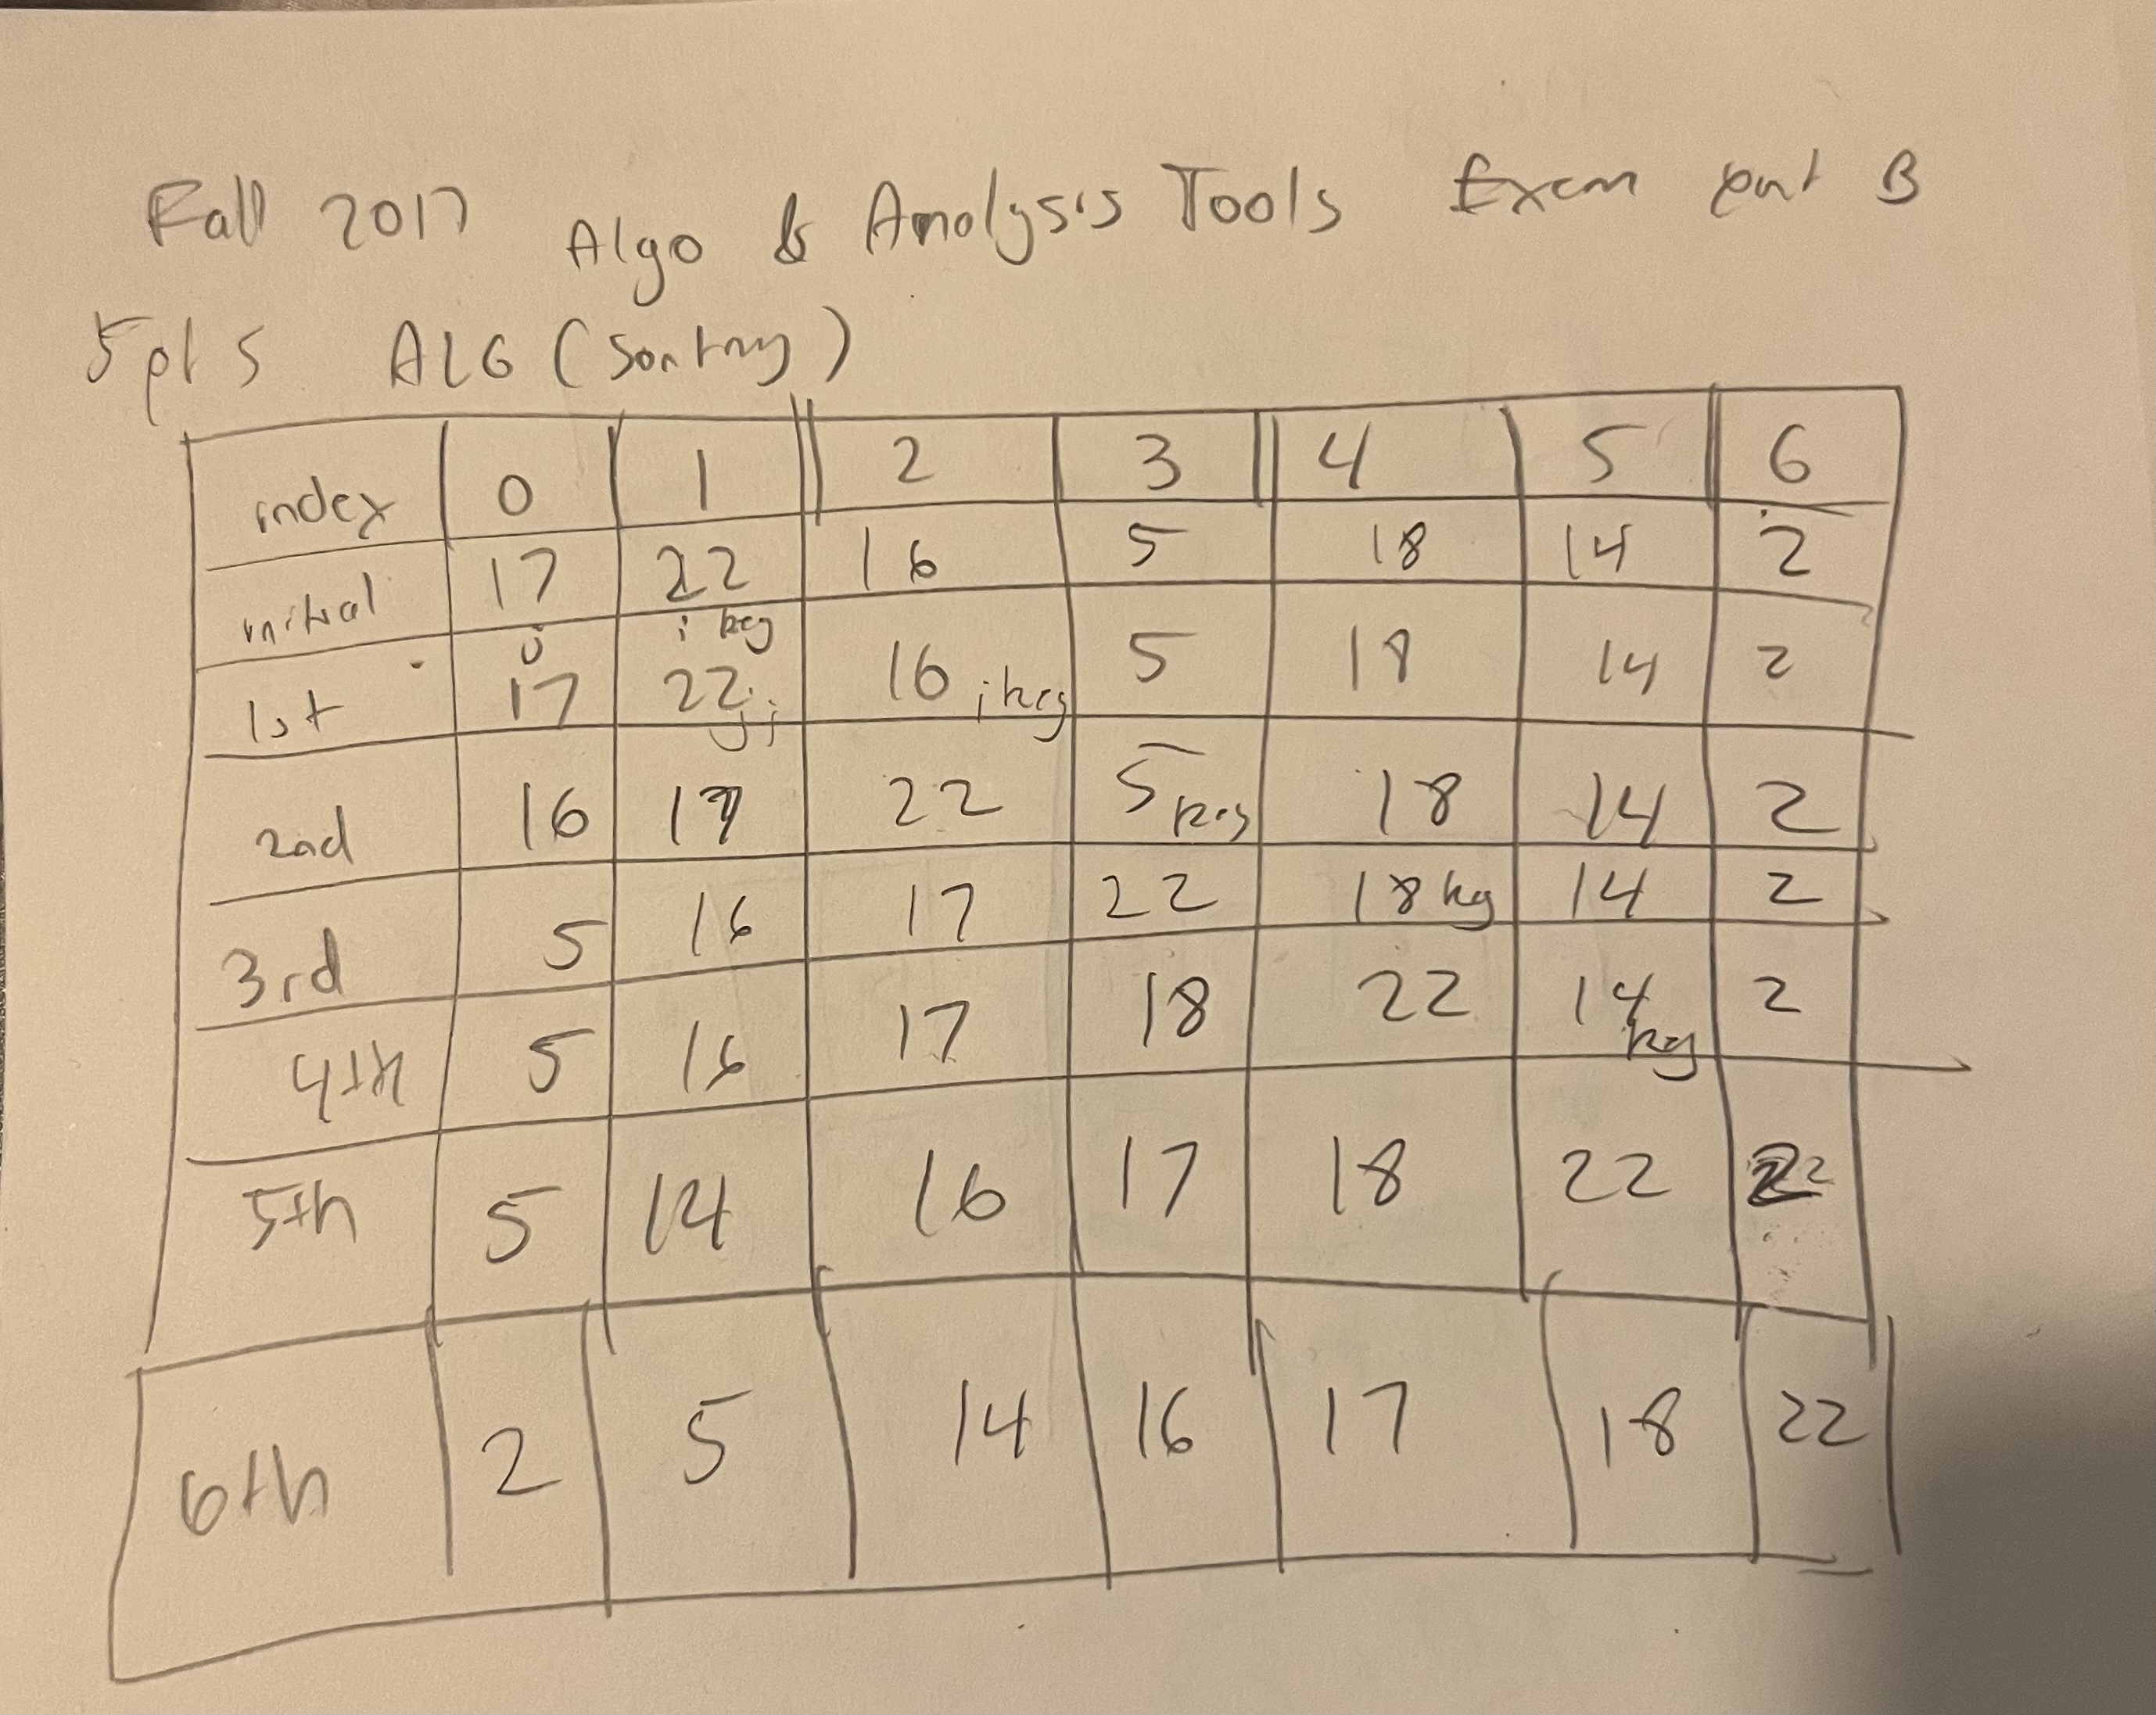 Fall 2017 Algo & Analysis Tools Exam part B
5pts ALG (Sorting)
index 0 1 2 3 4 5 6
initial 17 22 16 5 18 14 2
j i key
1st 17 22 j i 16 i key 5 18 14 2
2nd 16 17 22 5 key 18 14 2
3rd 5 16 17 22 18 key 14 2
4th 5 16 17 18 22 14 key 2
5th 5 14 16 17 18 22 2
6th 2 5 14 16 17 18 22